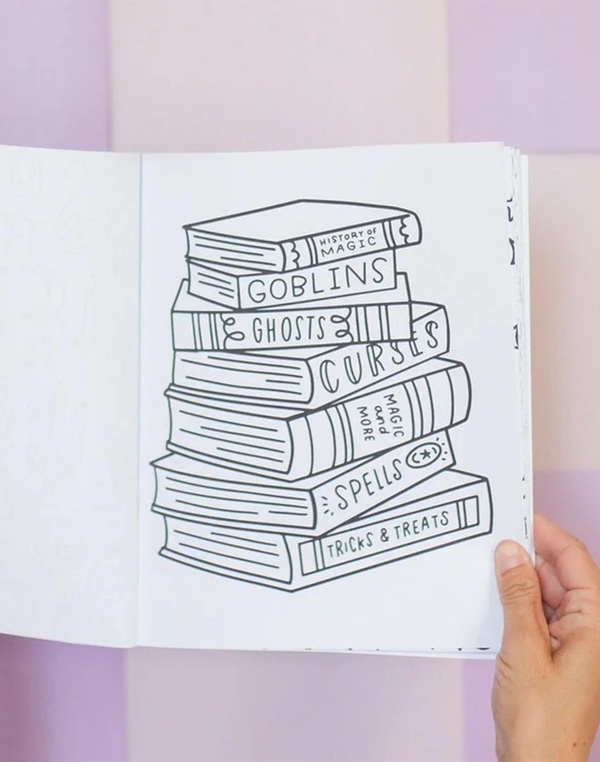 HISTORY OF
MAGIC
GOBLINS
GHOSTS
CURSES
MAGIC
and
MORE
SPELLS
TRICKS & TREATS